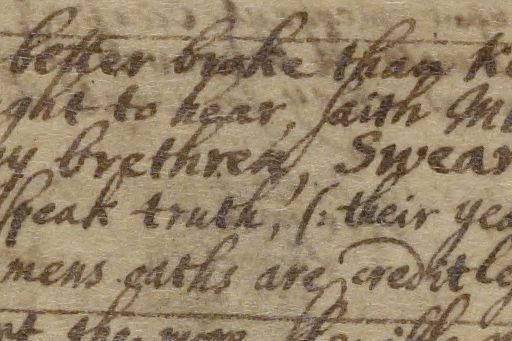 better brake than k
ght to hear, saith M
y brethren, Swear
speak truth, (: their yea
mens oaths are creditly